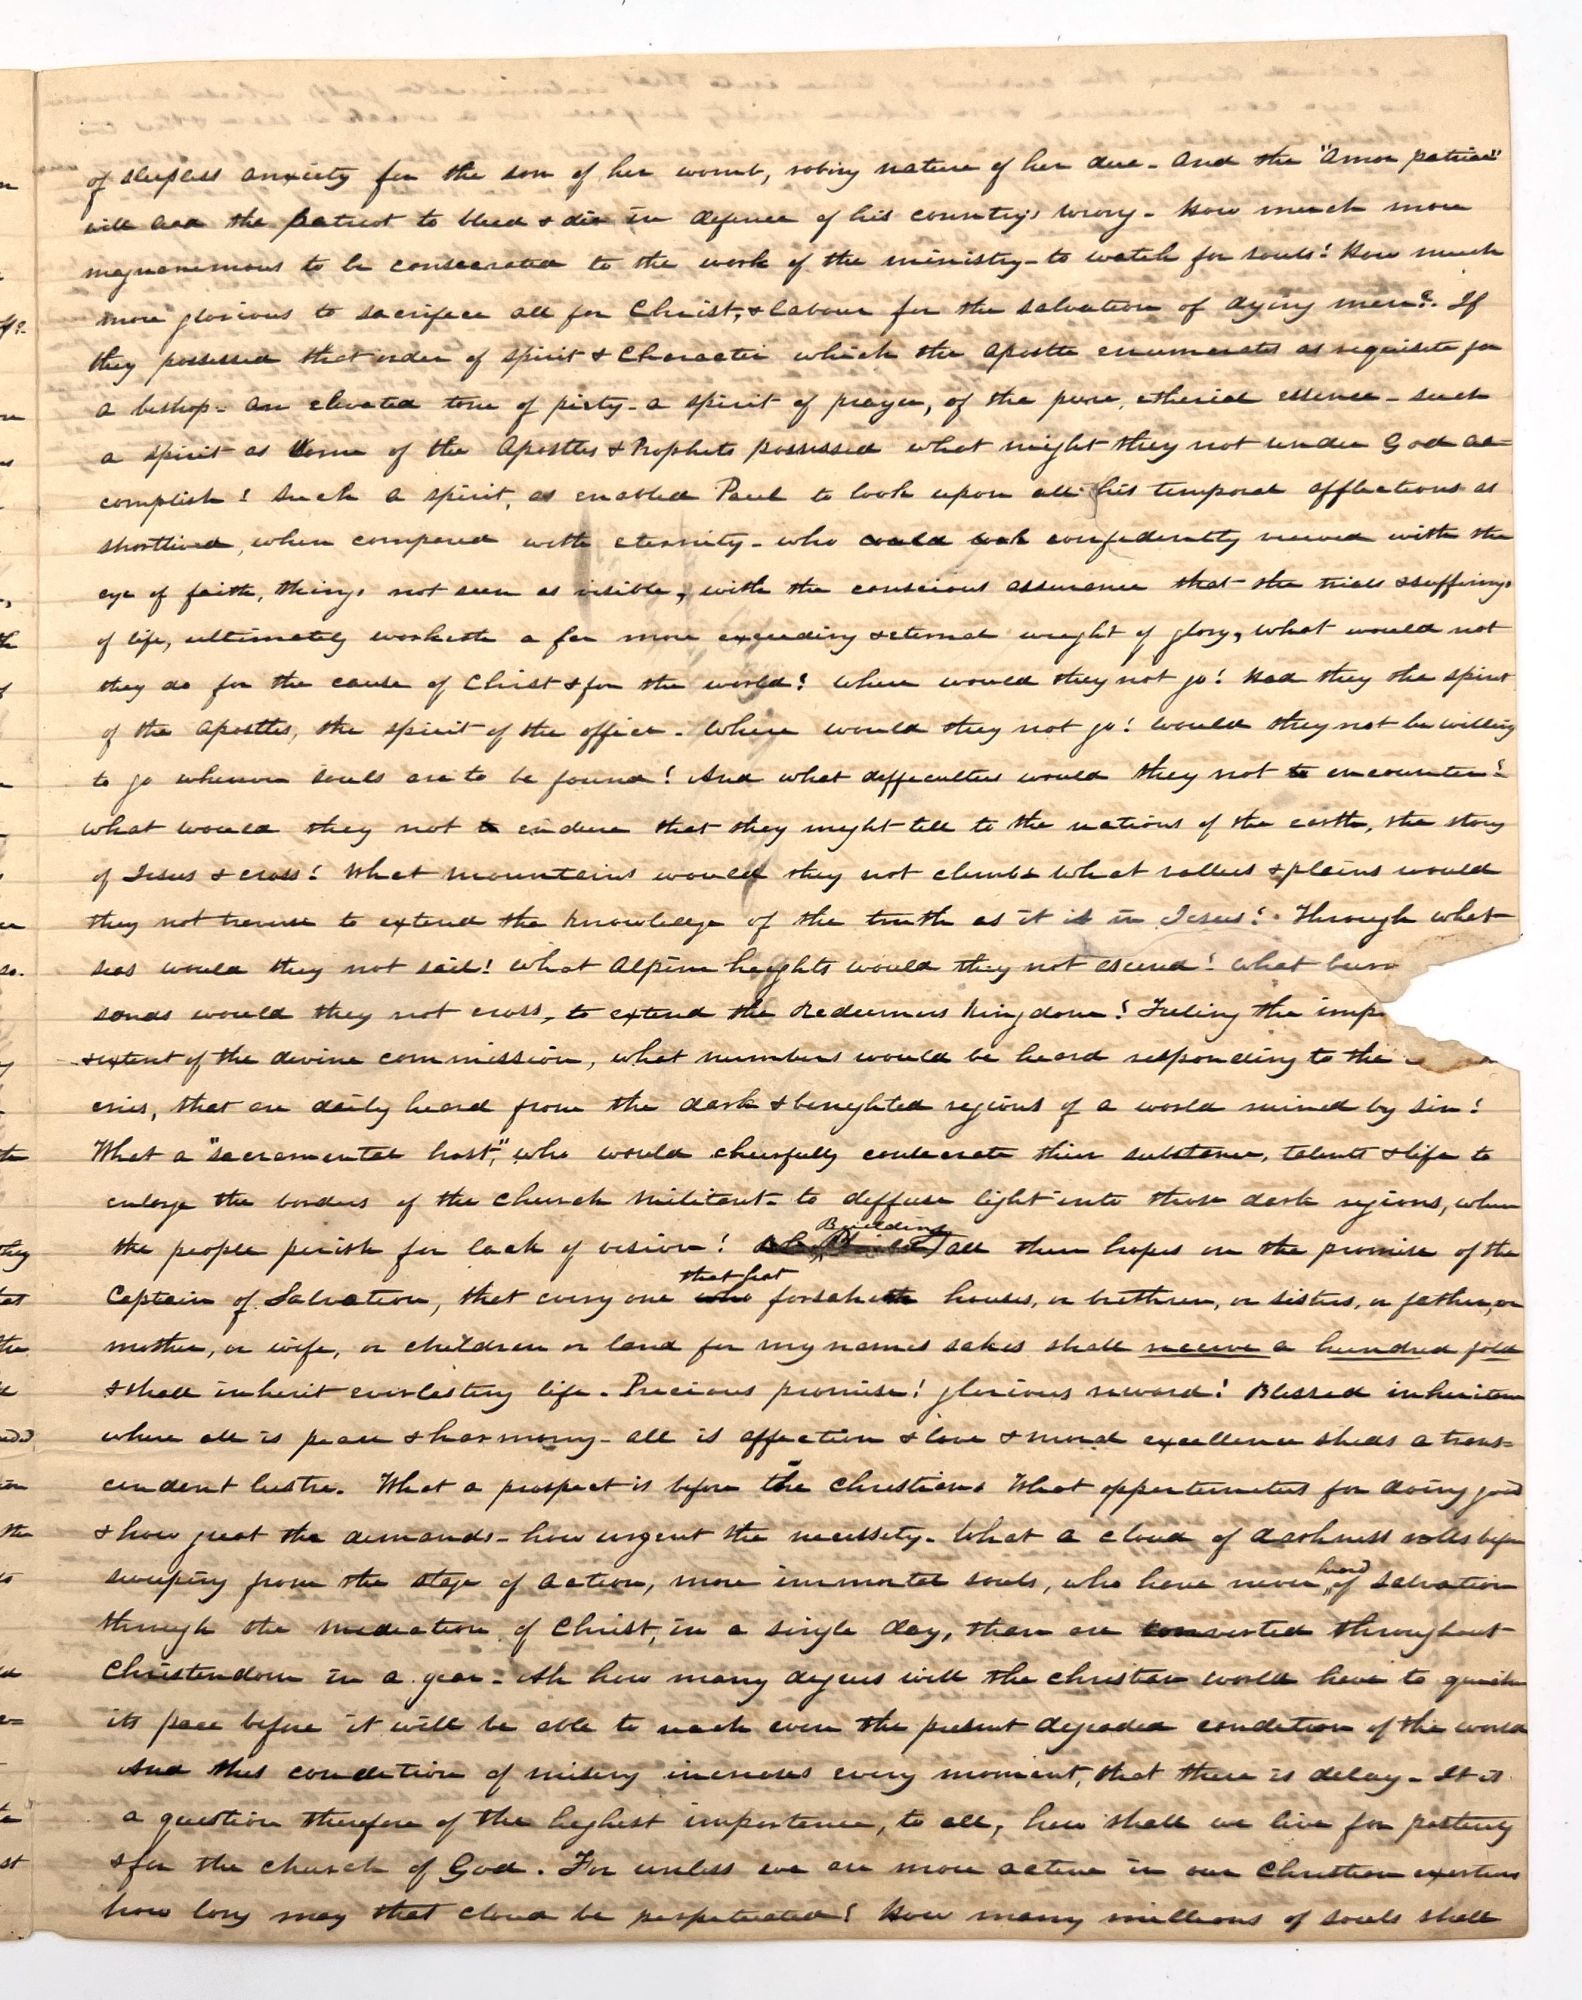 of sleepless anxiety for the son of her womb, robing nature of her due - And the "Amor patriae"
will lead the patriot to bleed & die in defence of his country's wrong - How much more
magnanimous to be consecrated to the work of the ministry - to watch for souls! How much
more glorious to sacrifice all for Christ, & labour for the salvation of dying men? If
they possessed that order of spirit & Character which the Apostle enumerates as requisite for
a bishop - an elevated tone of piety - a spirit of prayer, of the pure, etherial essence - such
a spirit as some of the Apostles & Prophets possessed what might they not under God ac-
complish! Such a spirit, as enabled Paul to look upon all his temporal afflictions as
shortlived, when compared with eternity - who could confidently viewed with the
eye of faith, things not seen as visible, with the conscious assurance that the trials & sufferings
of life, ultimately worketh a far more exceeding & eternal weight of glory, what would not
they do for the cause of Christ & for the world! Where would they not go! Had they the spirit
of the Apostles, the spirit of the office - Where would they not go! Would they not be willing
to go wherever souls are to be found! And what difficulties would they not to encounter!
What would they not to endure that they might tell to the nations of the earth, the story
of Jesus & cross! What mountains would they not climb - what vallies & plains would
they not traverse to extend the knowledge of the truth as it is in Jesus! Through what
seas would they not sail! What Alpine heights would they not ascend! What burn
sands would they not cross, to extend the Redeemers kingdom! Feeling the imp
& extent of the divine commission, what numbers would be heard responding to the
cries, that are daily heard from the dark & benighted regions of a world ruined by sin!
What a "sacramental host", who would cheerfully consecrate their substance, talents & life to
enlarge the borders of the church militant - to diffuse light into those dark regions, where
the people perish for lack of vision! Building all their hopes on the promise of the
Captain of Salvation, that every one who that hat forsaketh houses, or brethren, or sisters, or father, or
mother, or wife, or children or land for my names sakes shall receive a hundred fold
& shall inherit everlasting life - Precious promise! glorious reward! Blessed inheritance
where all is peace & harmony - all is affection & love & moral excellence sheds a trans=
cendent lustre. What a prospect is before the Christian. What opportunities for doing good
& how great the demands - how urgent the necessity - What a cloud of darkness rolls before
sweeping from the stage of action, more immortal souls, who have never heard of Salvation
through the mediation of Christ, in a single day, than are converted throughout
Christendom in a year - Ah how many degrees will the Christian world have to quicken
its pace before it will be able to reach even the present degraded condition of the world
And this condition of misery increases every moment, that there is delay - It is
a question therefore of the highest importance, to all, how shall we live for posterity
& for the church of God. For unless we are more active in our Christian exertions
how long may that cloud be perpetuated! How many millions of souls shall